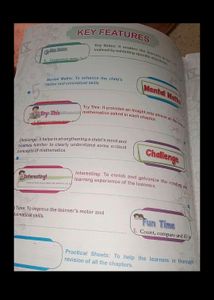 KEY FEATURES
Key Notes: It enables the learners
Mental Maths: To enhance the child's
Mental Maths
Try This
Try This: It provides an insight into
mathematics asked in each chapter.
Challenge: It helps in strengthening a child's mind and
to clearly understand some critical
concepts of mathematics.
Challenge
Interesting!
Interesting: To enrich and galvanize the
learning experience of the learners.
Time: To improve the learner's motor and
skills.
Fun Time
1. Count, compare and
Practical Sheets: To help the learners in thorough
revision of all the chapters.